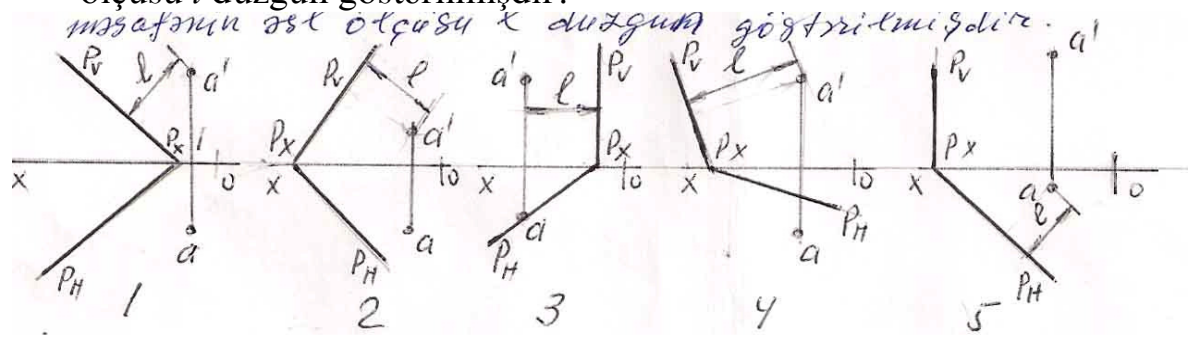 ölçüsü l düzgün göstərilmişdir?
məsafənin əsl ölçüsü l düzgün göstərilmişdir.
Pv l a' Px x o PH a 1
Pv l a' Px x o PH a 2
a' Pv l Px x o a PH 3
Pv l a' Px x o PH a 4
Pv a' Px x a o l PH 5